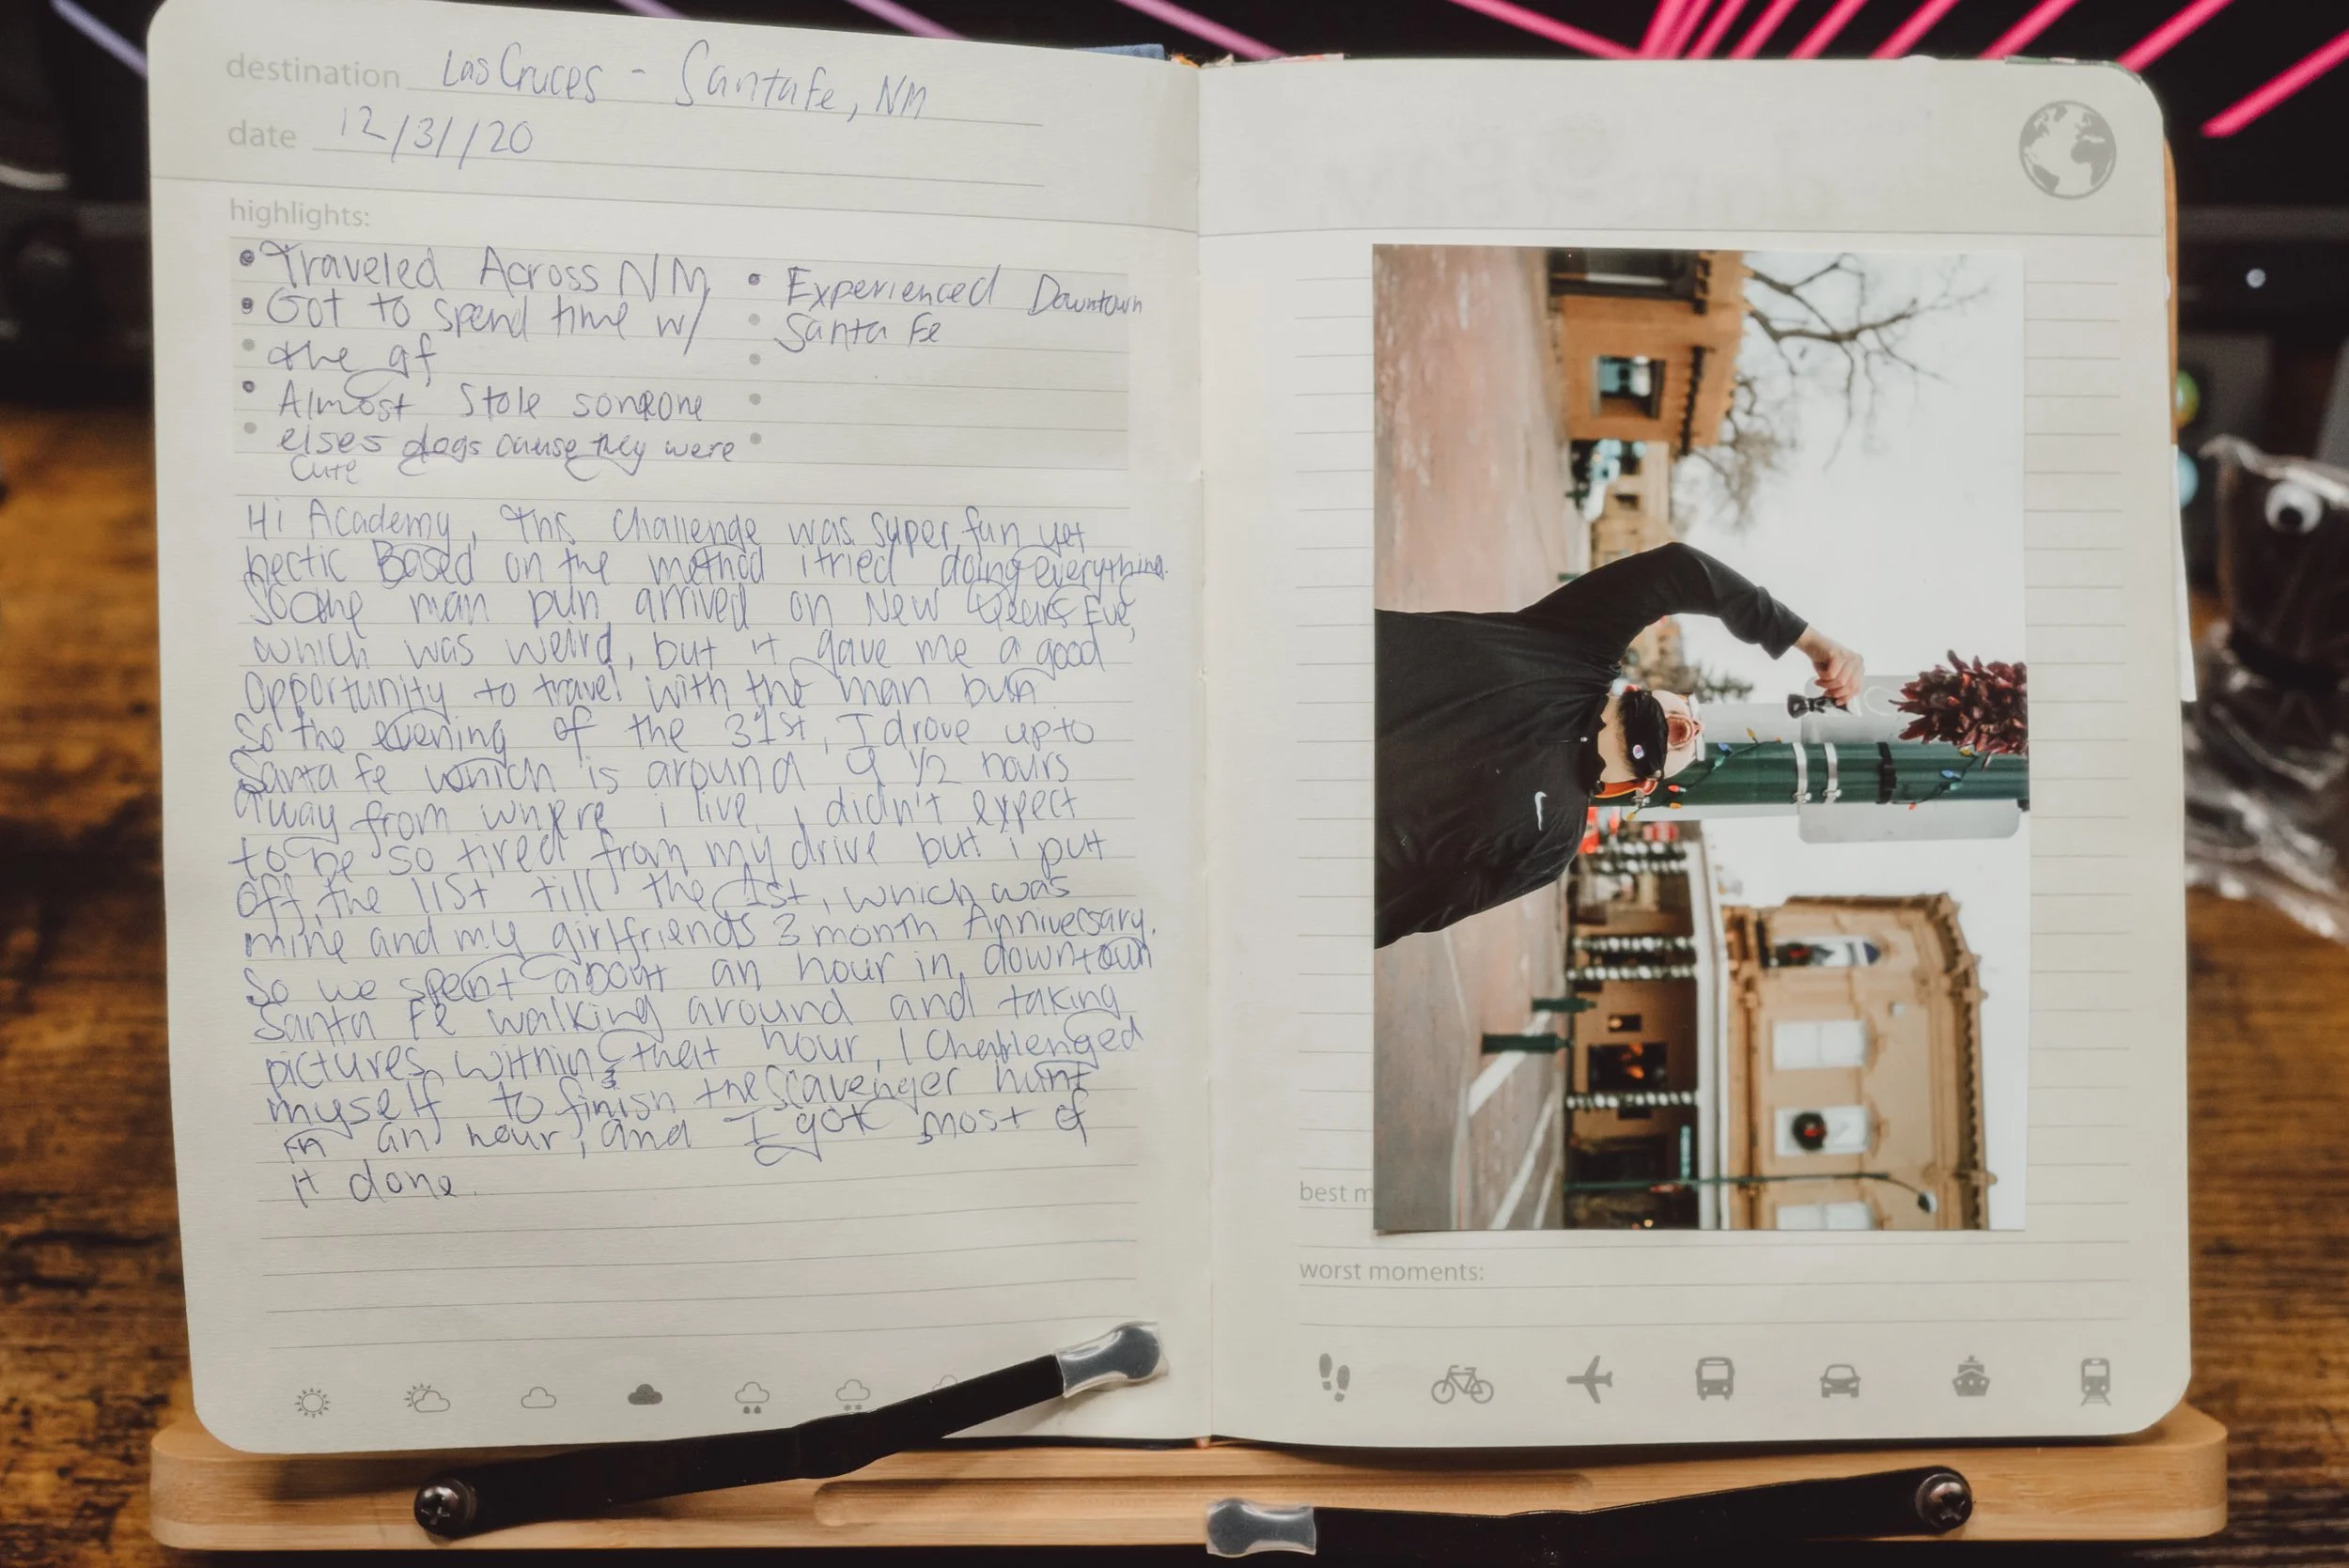 destination Las Cruces - Santa Fe, NM
date 12/31/20
highlights:
• Traveled Across NM
• Got to spend time w/
• the gf
• Almost Stole someone
• elses dogs cause they were
cute
• Experienced Downtown
• Santa Fe
Hi Academy, This challenge was super fun yet
hectic Based on the method i tried doing everything.
So the man bun arrived on New Years Eve,
which was weird, but it gave me a good
opportunity to travel with the man bun
So the evening of the 31st, I drove up to
Santa Fe which is around 4 1/2 hours
away from where i live, i didn't expect
to be so tired from my drive but i put
off the list till the 1st, which was
mine and my girlfriends 3 month Anniversary.
So we spent about an hour in downtown
Santa Fe walking around and taking
pictures, within that hour, I Challenged
myself to finish the scavenger hunt
in an hour, and I got most of
it done.
best m
worst moments: